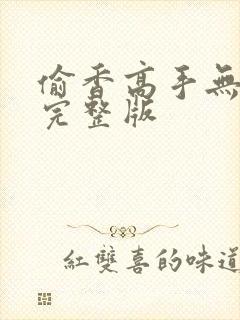 偷香高手無
完整版
紅雙喜的味道